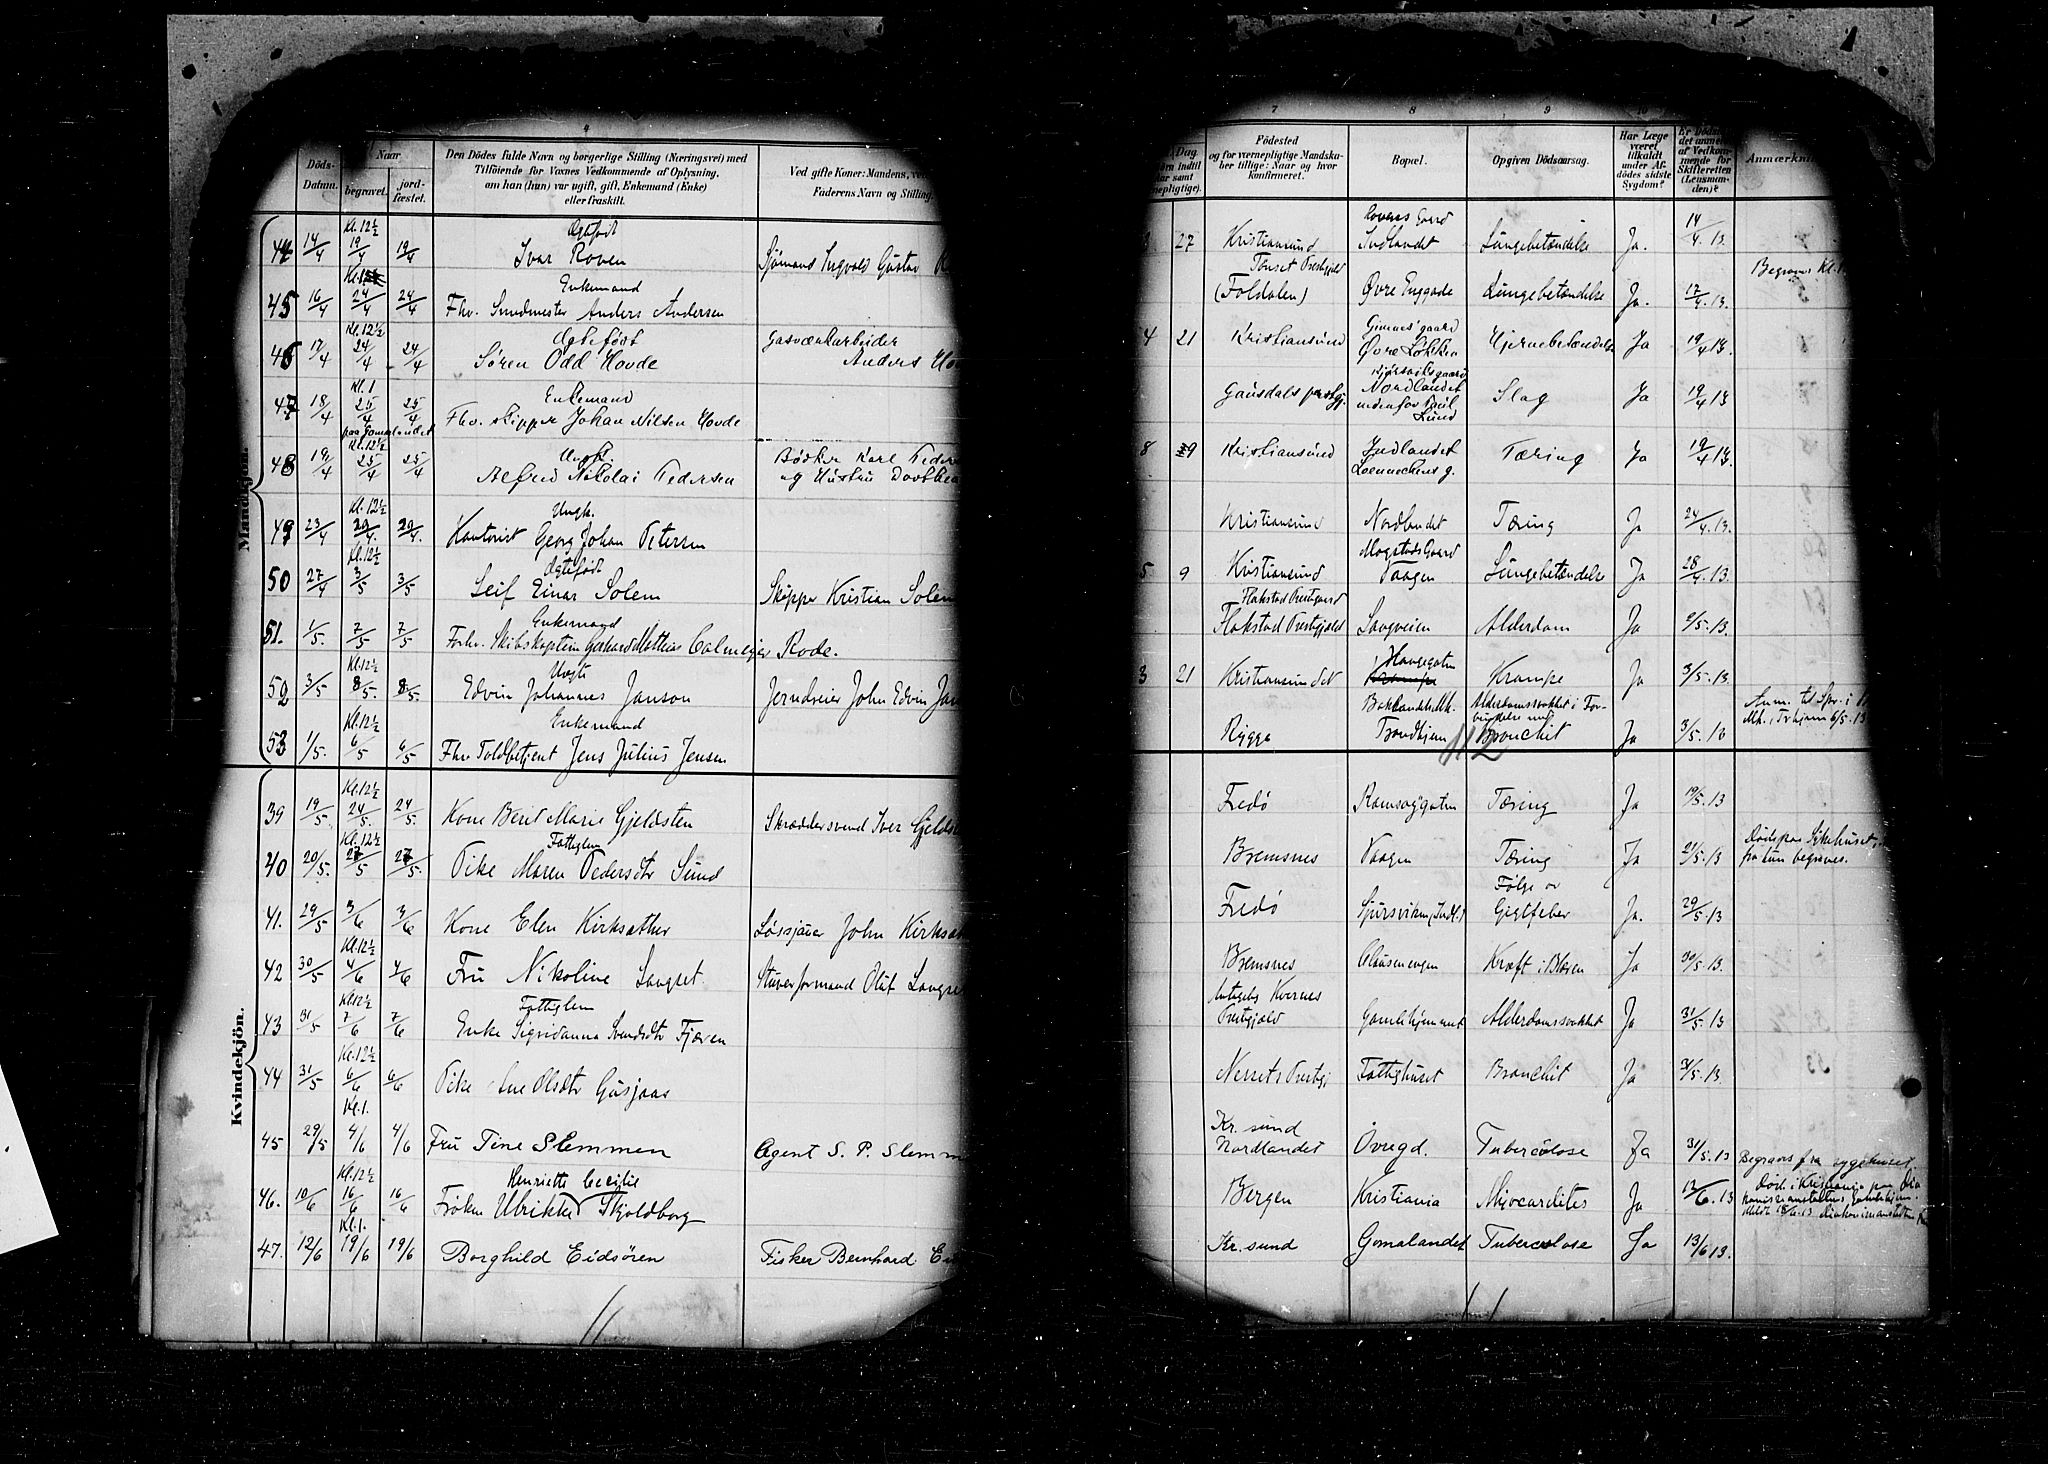 4
Naar
Den Dödes fulde Navn og borgerlige Stilling (Næringsvei) med
Tilföiende for Voxnes Vedkommende af Oplysning,
om han (hun) var ugift, gift, Enkemand (Enke)
eller fraskilt.
Döds-
Datum.
begravet.
jord-
fæstet.
Ved gifte Koner: Mandens,
Faderens Navn og Stilling.
Mandkjön.
Kl. 12½
Ægtefødt
44 14/4 19/4 19/4 Ivar Roven Sjømand Ingvald Gustav
Enkemand
45 16/4 24/4 24/4 Fhv. Anders Andersen
Kl. 12½ Ægtefödt Gasværkarbeider
46 17/4 24/4 24/4 Sören Odd Hovde Anders
Kl. 1 Enkemand
47 18/4 25/4 25/4 Fhv. skipper Johan Nilsen Hovde
paa Gomalandet
Kl. 12½ Ungk. Bödker Karl
48 19/4 25/4 25/4 Alfred Nikolai Pedersen og Hustru
Kl. 12½ Ungk.
49 23/4 29/4 29/4 Kontorist Georg Johan Petersen
Kl. 12½ Ægtefödt
50 27/4 3/5 3/5 Leif Einar Solem Skipper Kristian Solem
Enkemand
51. 1/5. 7/5 7/5 Forhv. Skibskaptein Gerhard Mathias Calmeyer Rode.
Kl. 12½
52 3/5 8/5. 8/5. Edvin Johannes Janson John Edvin
Kl. 12½ Enkemand
53 1/5. 6/5 6/5 Fhv. Toldbetjent Jens Julius Jensen
Kvindekjön.
Kl. 12½
39 19/5 24/5. 24/5. Kone Berit Marie Gjeldsten Skræddersvend Iver
Kl. 12½ Fattiglem
40 20/5. 27/5 27/5. Pike Maren Pedersdtr Sund
41. 29/5 3/6 3/6 Kone Elen Kirksæther Løssjauer John
Kl. 12½
42 30/5 4/6 4/6 Fru Nikoline Langset. Stuerformand Oluf
Kl. 12½ Fattiglem
43 31/5 7/6 7/6 Enke Sigridanna Svendsdtr Fjæren
Kl. 12½
44 31/5 6/6 6/6 Pike Ane Olsdtr Gusjaas
Kl. 1.
45 29/5 4/6 4/6 Fru Tine Slemmen Agent S. P.
Kl. 12½ Henriette Cecilie
46. 10/6 16/6 16/6 Frøken Ulrikke Skjoldborg
Kl. 1.
47. 12/6 19/6 19/6 Borghild Eidsören Fisker Bernhard
7
8
9
10
Dag
Födested
og for værnepligtige Mandska-
ber tillige: Naar og hvor
konfirmeret.
Bopæl.
Opgiven Dödsaarsag.
Har Læge
været
tilkaldt
under Af-
dödes sidste
Sygdom?
Er Döds
det anmel
af Vedkom-
mende for
Skifteretten
(Lensman-
den)?
Anmærkni
Rovens Gaard
27 Kristiansund Indlandet Lungebetændelse Ja. 14/4.13.
Tönset Prestgjeld
(Foldalen) Øvre Enggade Lungebetændelse Ja. 17/4.13.
Begraves Kl. 1
4 21 Kristiansund Øvre Løkken Hjernebetændelse Ja 19/4 13.
Gausdals prstgj. Nordlandet Slag Ja 19/4 13
indenfor Paul
Lund
8 9 Kristiansund Indlandet Tæring Ja 19/4 13.
Kristiansund Nordlandet Tæring Ja 24/4.13.
Magstads Gaard
5 9 Kristiansund Vaagen Lungebetændelse Ja 28/4.13.
Flakstad Prestegaard
Flakstad Prestgjeld Langveien Alderdom Ja 2/5.13.
Haugegaten
3 21 Kristiansund N Krampe Ja 3/5.13.
Baklandets Alderdomssvækket i For-
bindelse med
Rygge Trondhjem Bronchit Ja 3/5.13
112
Fredö Ramsøygaten Tæring Ja 19/5.13
Bremsnes Vaagen Tæring Ja 21/5.13
Döde paa Sykehuset,
fra begraves.
Følge av
Fredö Sjursviken (Indl.) Gigtfeber Ja. 29/5.13
Bremsnes Clausenengen Kræft i Blæren Ja 30/5.13.
Antagelig Kvernes
Prestgjeld Gamlehjemmet Alderdomssvækket Ja 31/5.13
Nessets Prestgj Fattighuset Bronchit Ja 31/5.13.
Kr. sund
Nordlandet Övregd. Tuberculose Ja 31/5.13
Begraves fra sygehuset.
Bergen Kristiania Myocarditis Ja 12/6.13
Död i Kristiania paa Dia
Kr. sund Gomalandet Tuberculose Ja 13/6 13.